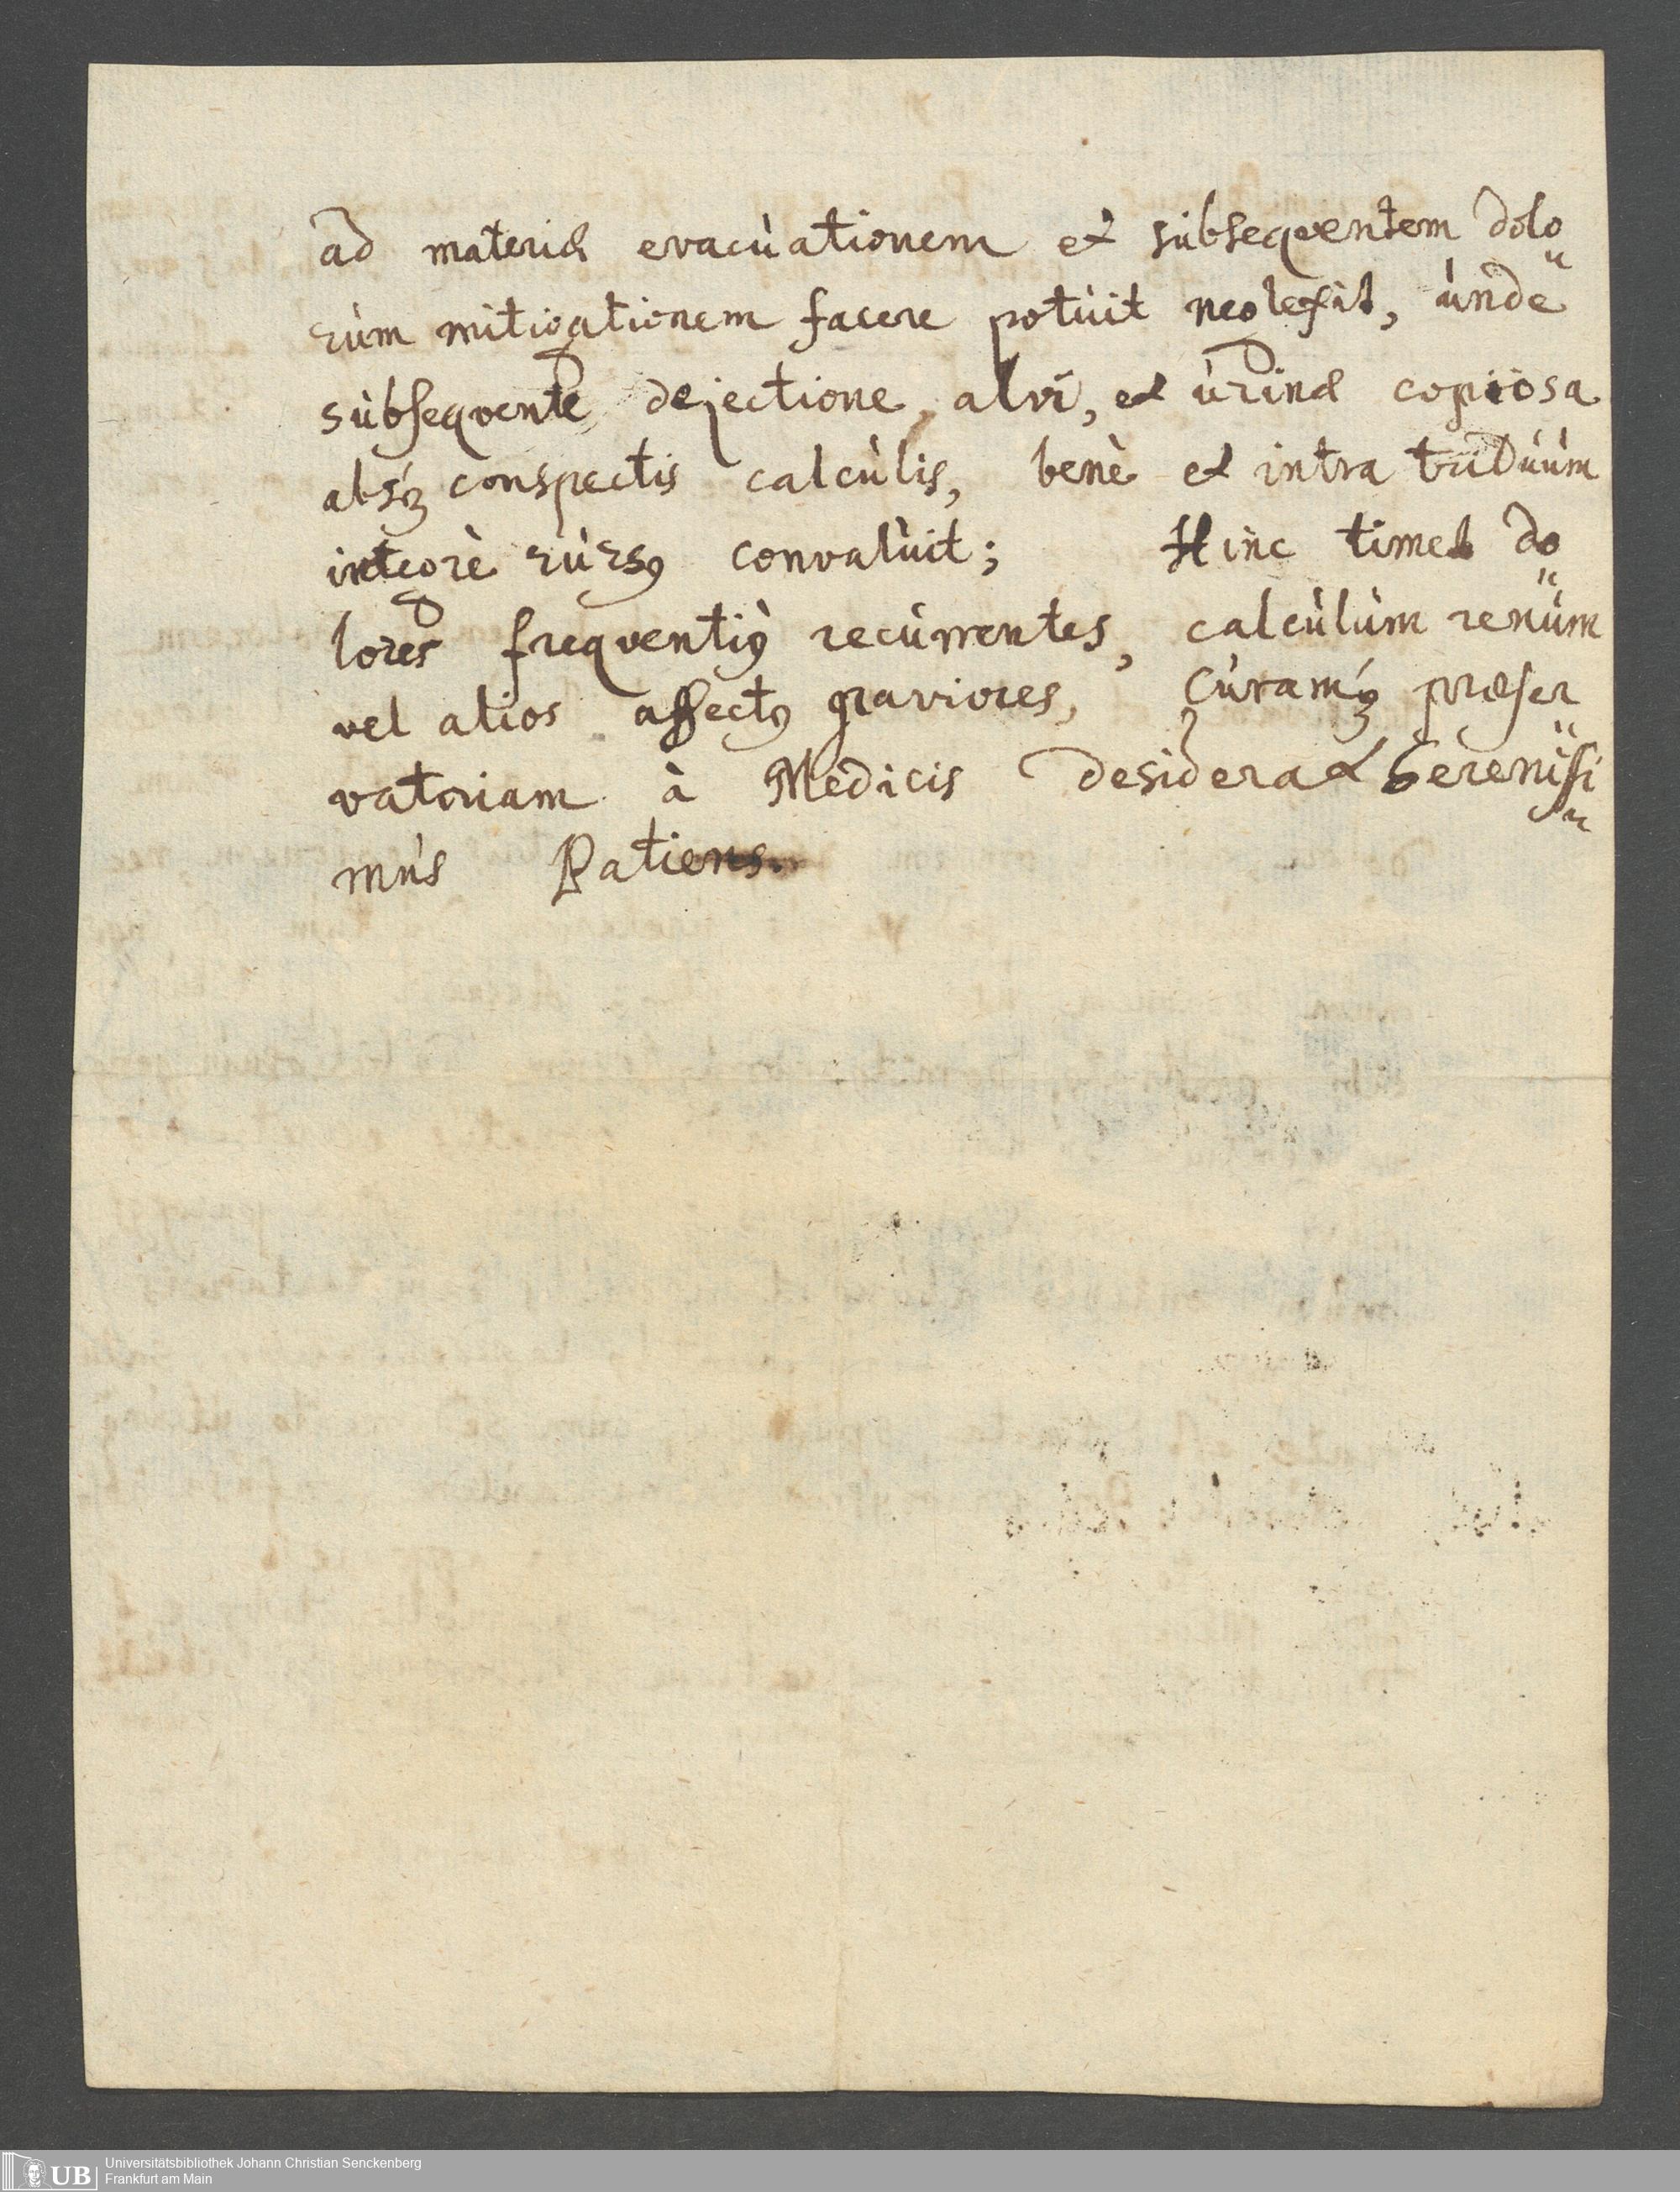 ad materiæ evacùationem et sùbseqventem dolo„
rùm mitigationem facere potùit neglexit, ùnde
sùbseqvente, dejectione, alvi, et ùrinæ copiosa
absq́ꝫ conspectis calcùlis, benè et intra tridùùm
integrè rùrsꝰ convalùit; Hinc timet do„
lores freqventiꝰ recùrrentes, calcùlùm renùm
vel alios affectꝰ graviores, Cùramq́ꝫ præser„
vatoriam à Medicis desiderat Serenissi„
mùs Patiens.
UB
Universitätsbibliothek Johann Christian Senckenberg
Frankfurt am Main